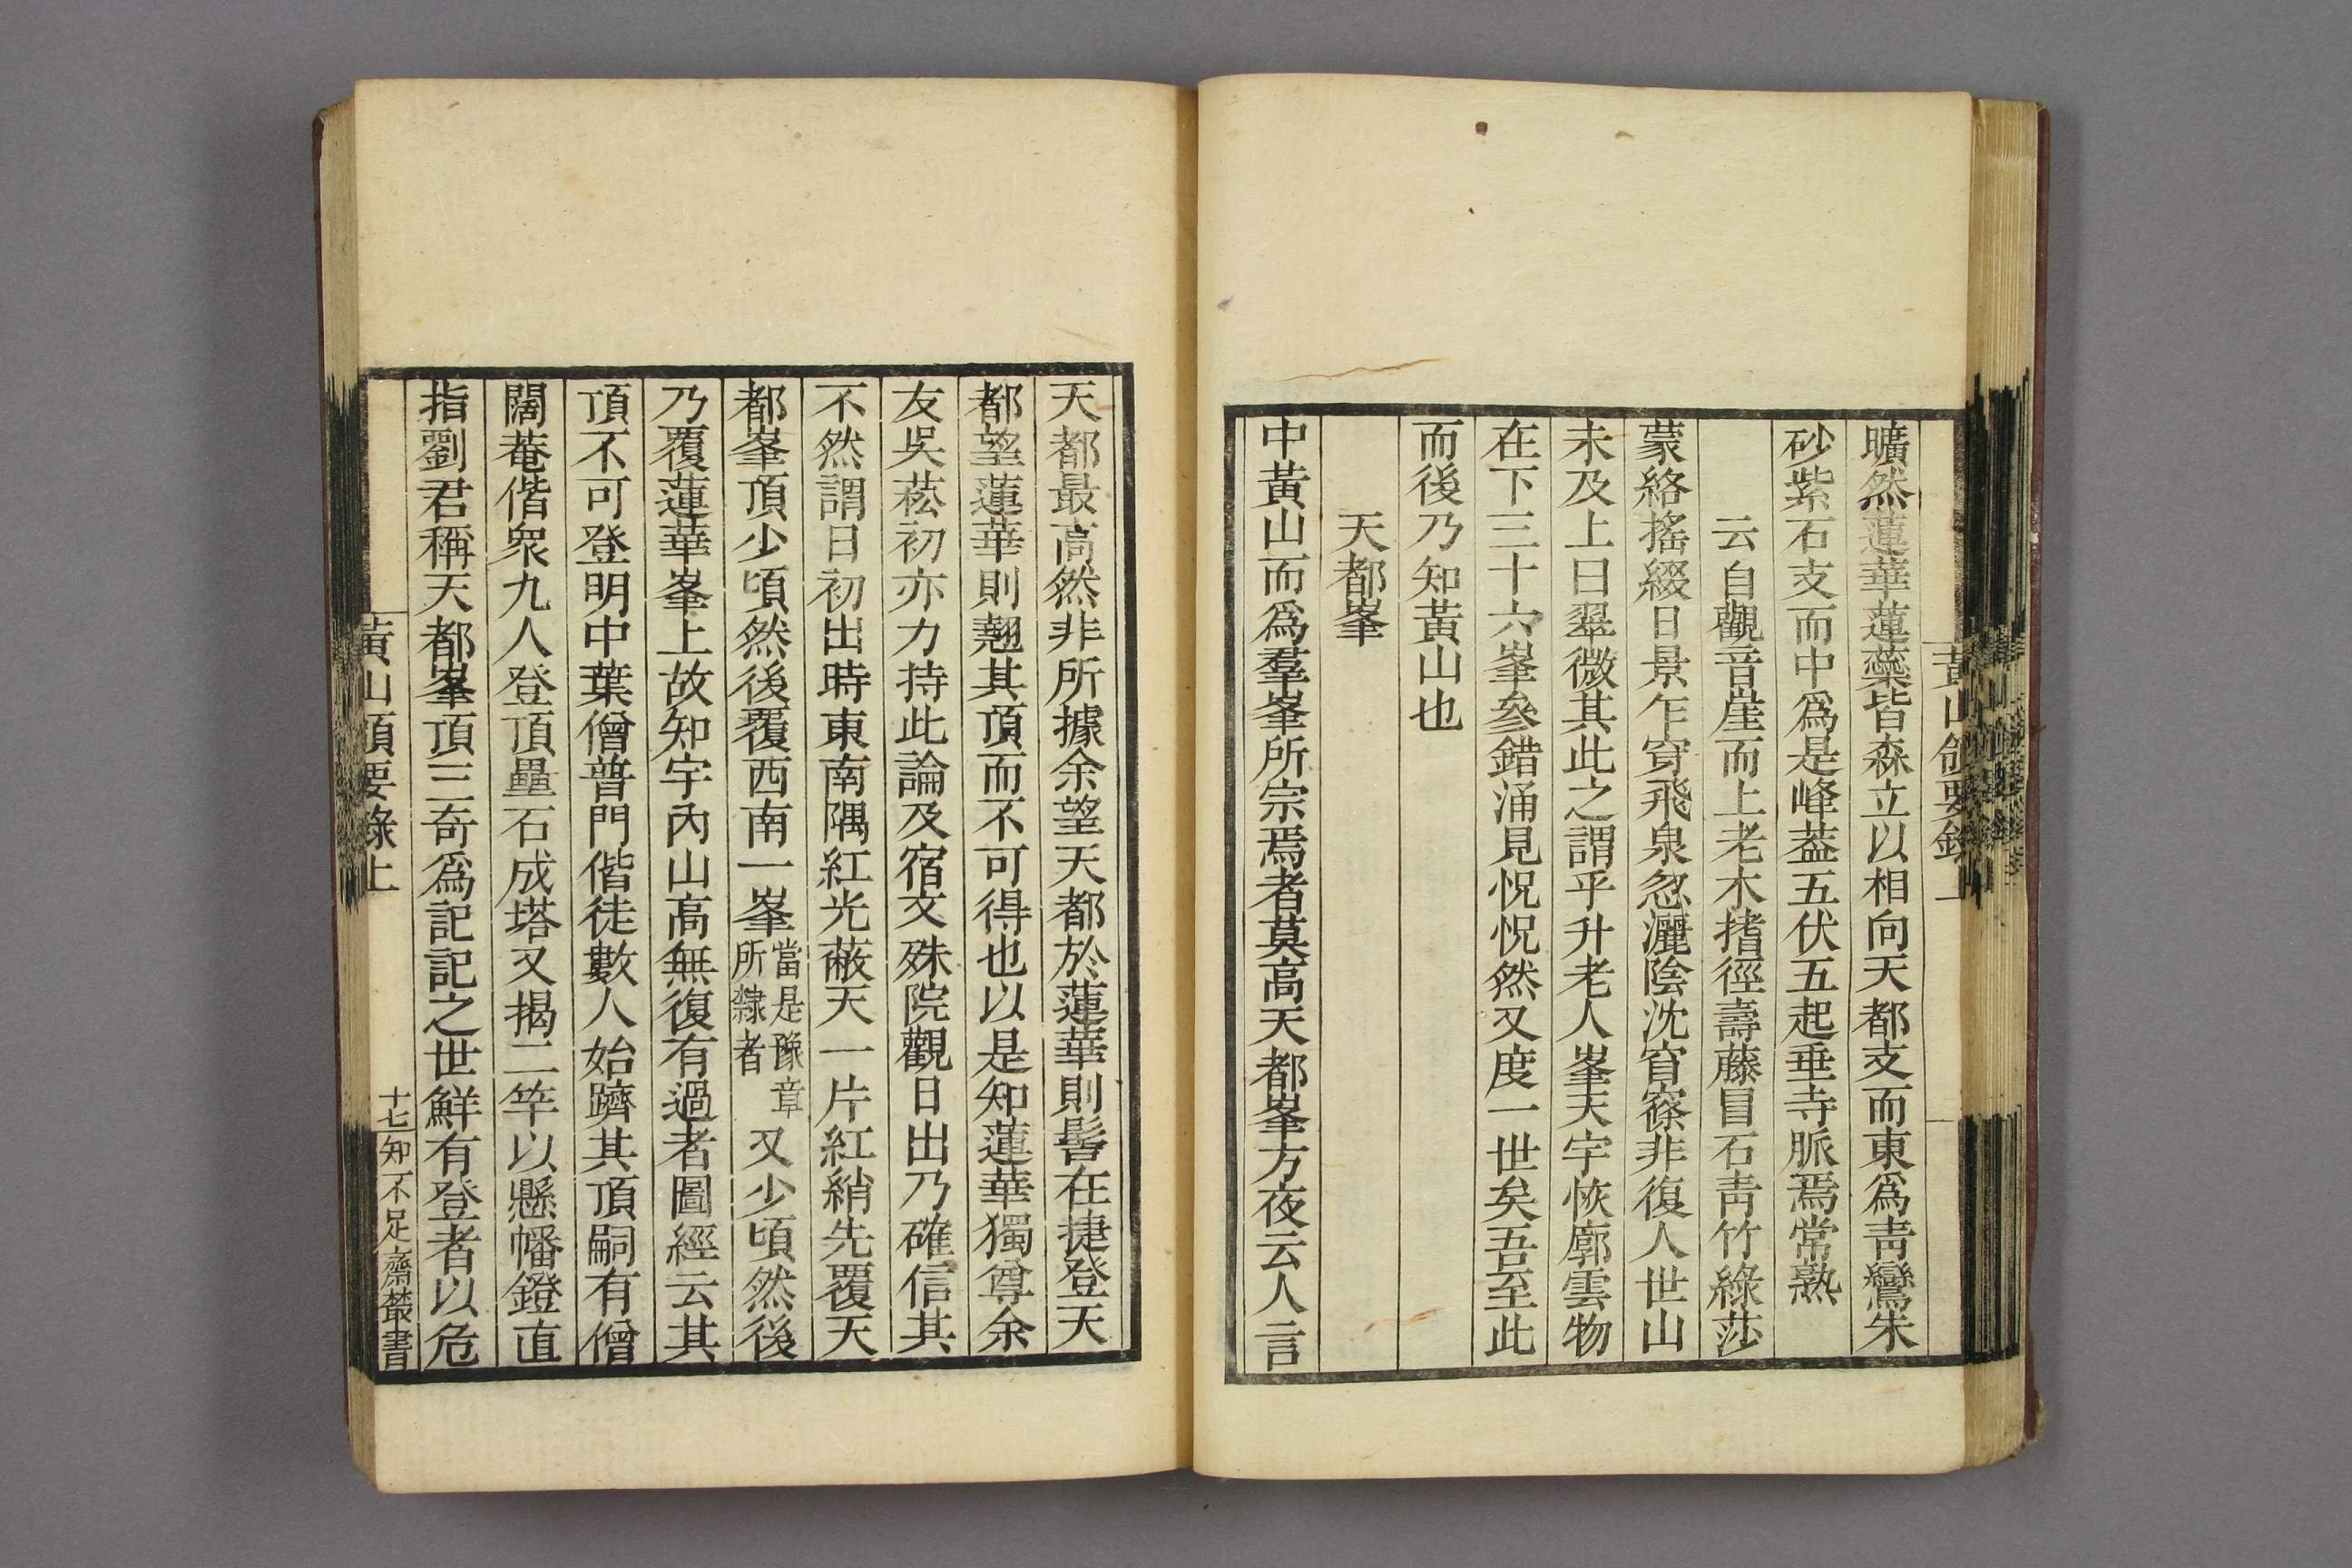 曠然蓮華蓮蘂皆森立以相向天都支而東爲靑鸞朱
砂紫石支而中爲是峰葢五伏五起垂寺脈焉常熟
云自觀音崖而上老木搘徑壽藤冒石靑竹綠莎
蒙絡搖綴日景乍穿飛泉忽灑陰沈窅窱非復人世山
未及上曰翠微其此之謂乎升老人峯天宇恢廓雲物
在下三十六峯參錯涌見怳怳然又度一世矣吾至此
而後乃知黃山也
天都峯
中黃山而爲羣峯所宗焉者莫高天都峯方夜云人言
天都最高然非所據余望天都於蓮華則髻在捷登天
都望蓮華則翹其頂而不可得也以是知蓮華獨尊余
友吳菘初亦力持此論及宿文殊院觀日出乃確信其
不然謂日初出時東南隅紅光蔽天一片紅綃先覆天
都峯頂少頃然後覆西南一峯當是豫章所隸者又少頃然後
乃覆蓮華峯上故知宇內山高無復有過者圖經云其
頂不可登明中葉僧普門偕徒數人始躋其頂嗣有僧
闊菴偕衆九人登頂壘石成塔又揭二竿以懸幡鐙直
指劉君稱天都峯頂三奇爲記記之世鮮有登者以危
黃山領要錄上
十七
知不足齋叢書